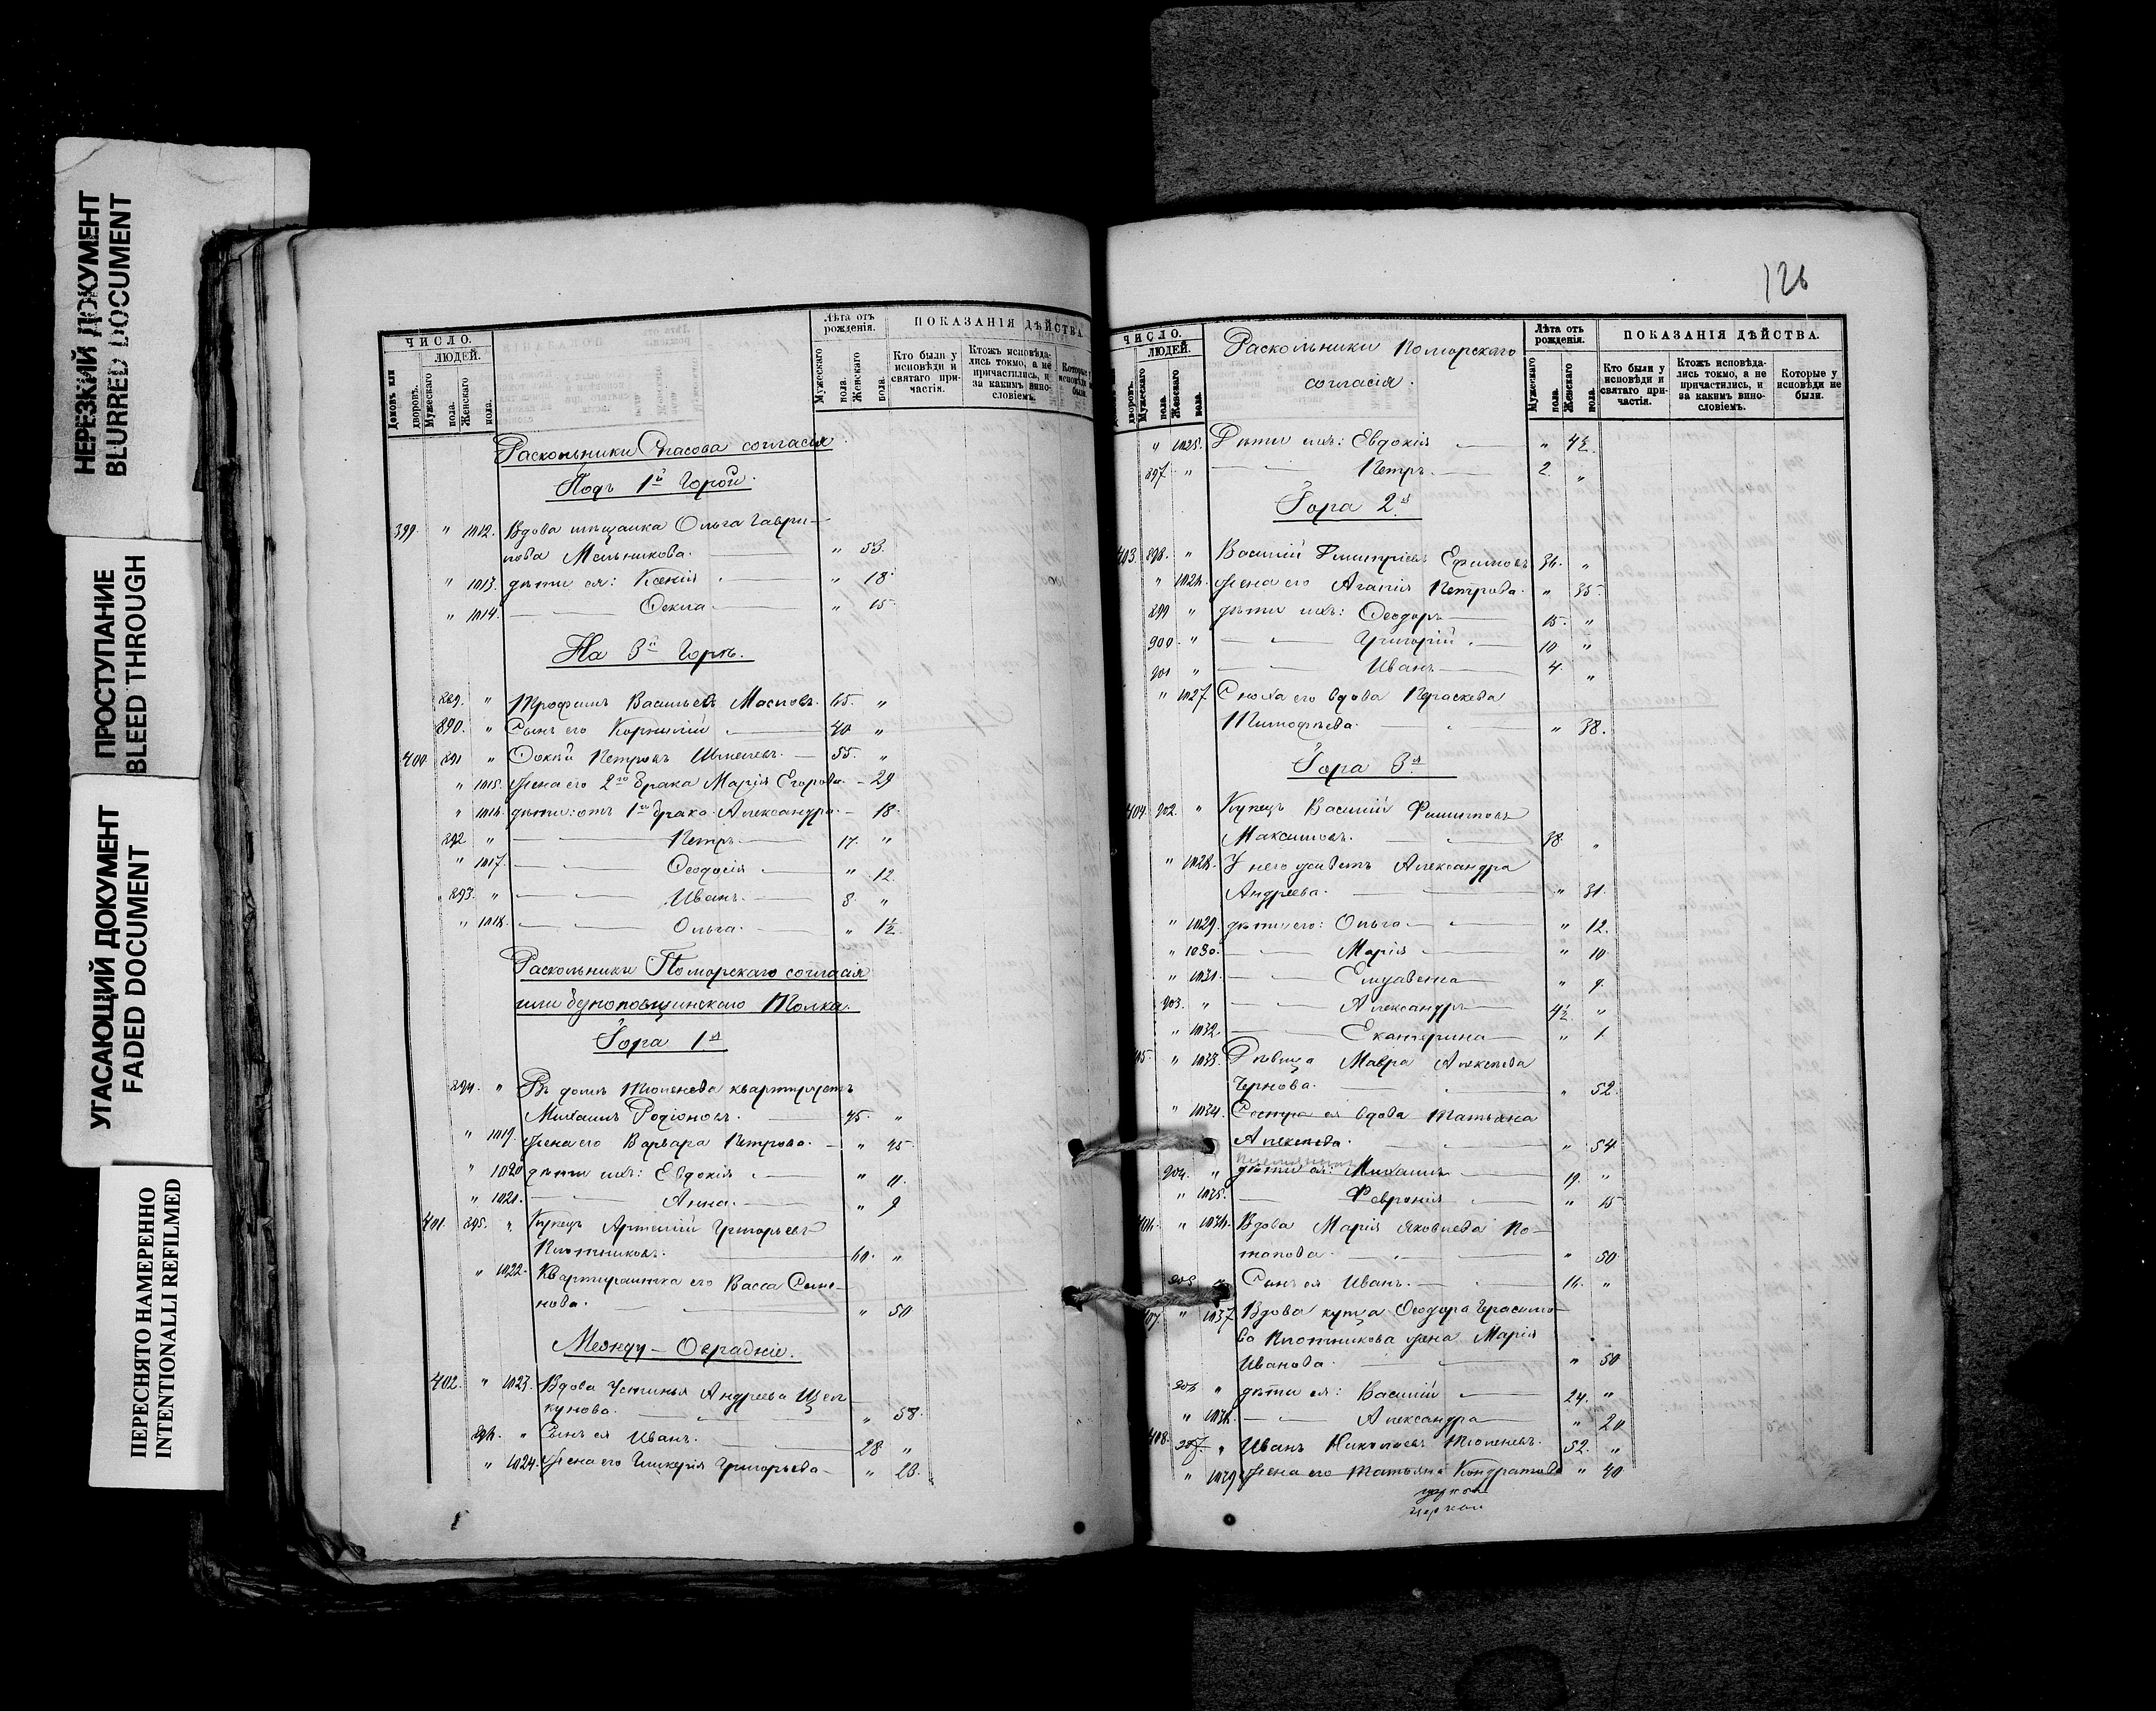 НЕРЕЗКИЙ ДОКУМЕНТ
BLURRED DOCUMENT
ПРОСТУПАНИЕ
BLEED THROUGH
УГАСАЮЩИЙ ДОКУМЕНТ
FADED DOCUMENT
ПЕРЕСНЯТО НАМЕРЕННО
INTENTIONALLI REFILMED
ЧИСЛО.
ЛЮДЕЙ.
Домовъ или дворовъ.
Мужескаго пола.
Женскаго пола.
Лѣта отъ рожденія.
Мужескаго пола.
Женскаго пола.
ПОКАЗАНІЯ ДѢЙСТВА.
Кто были у исповѣди и святаго причастія.
Ктожъ исповѣдались токмо, а не причастились, и за какимъ винословіемъ.
Которые у исповѣди не были.
Раскольники Спасова согласія
Подъ 1й Горой.
399. " 1012. Вдова мѣщанка Ольга Гаври-
лова Мельникова. " 53.
" 1013. дѣти ея: Ксенія " 18
" 1014. Ѳекла " 15
На 3й Горѣ.
889. " Трофимъ Васильевъ Масловъ. 65. "
890. " Сынъ его Корнилій 40 "
400 891 " Петровъ 55. "
" 1015. Жена его 2го брака Марія Егорова. - 29
" 1016. дѣти: отъ 1го брака Александра - 18.
892 " Петръ 17. "
" 1017. Ѳеодосія " 12.
893. " Иванъ. 8. "
" 1018. Ольга. " 1½
Раскольники Поморскаго согласія
или безпоповщинскаго Толка.
Гора 1я
894. " Въ домѣ Тюленева квартируетъ
Михаилъ Родіоновъ. 45. "
" 1019. Жена его Варвара Петрова. " 45.
" 1020 дѣти ихъ: Евдокія " 11.
" 1021. Анна. " 9
401. 895. " Купецъ Артемій Григорьевъ
Плотниковъ. 60. "
" 1022. Квартирантка его Васса Семе-
нова. " 50
Между-Овражніе.
402. " 1023. Вдова Устинья Андреева
кунова. " 58.
896. " Сынъ ея Иванъ. 28 "
" 1024. Жена его Гликерія Григорьева " 23.
126
ЧИСЛО.
ЛЮДЕЙ.
дворовъ.
Мужескаго пола.
Женскаго пола.
Раскольники Поморскаго
согласія.
Лѣта отъ рожденія.
Мужескаго пола.
Женскаго пола.
ПОКАЗАНІЯ ДѢЙСТВА.
Кто были у исповѣди и святаго причастія.
Ктожъ исповѣдались токмо, а не причастились, и за какимъ винословіемъ.
Которые у исповѣди не были.
" 1025. Дѣти ихъ: Евдокія " 4½
897. " Петръ. 2. "
Гора 2я
403. 898. " Василій Дмитріевъ Ефимовъ 36. "
" 1026. Жена его Агапія Петрова. " 35.
899 " дѣти ихъ: Ѳеодоръ 15. "
900 " Григорій 10 "
901 " Иванъ 4. "
" 1027. Сноха его вдова Параскева
Тимофѣева. " 38.
Гора 3я
404. 902. " Купецъ Василій Филиповъ
Максимовъ. 38. "
" 1028. У него живетъ Александра
Андреева. " 31.
" 1029. дѣти его: Ольга " 12.
" 1030. Марія " 10
" 1031. Елизавета " 9.
903. " Александръ 4½ "
" 1032. Екатерина " 1
405. " 1033. Дѣвица Мавра Алексѣева
Чернова. " 52.
" 1034. Сестра ея вдова Татьяна
Алексѣева. " 54
904. " дѣти ея: Михаилъ 19. "
" 1035. Февронія " 15
406. " 1036. Вдова Марія Яковлева По-
тапова. " 50
905 " Сынъ ея Иванъ. 16. "
407 " 1037 Вдова купца Ѳеодора Герасимо-
ва Плотникова жена Марія
Иванова. " 50
906 " дѣти ея: Василій 24. "
" 1038. Александра " 20
408. 907. " Иванъ Николаевъ Тюленевъ. 52. "
" 1039 Жена его Татьяна Кондратова " 40